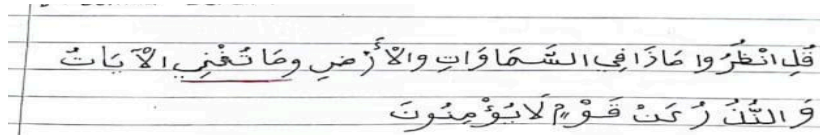 قُلِ انْظُرُوا مَاذَا فِي السَّمَاوَاتِ وَالْأَرْضِ وَمَا تُغْنِي الْآيَاتُ
وَ النُّذُرُ عَنْ قَوْمٍ لَا يُؤْمِنُونَ